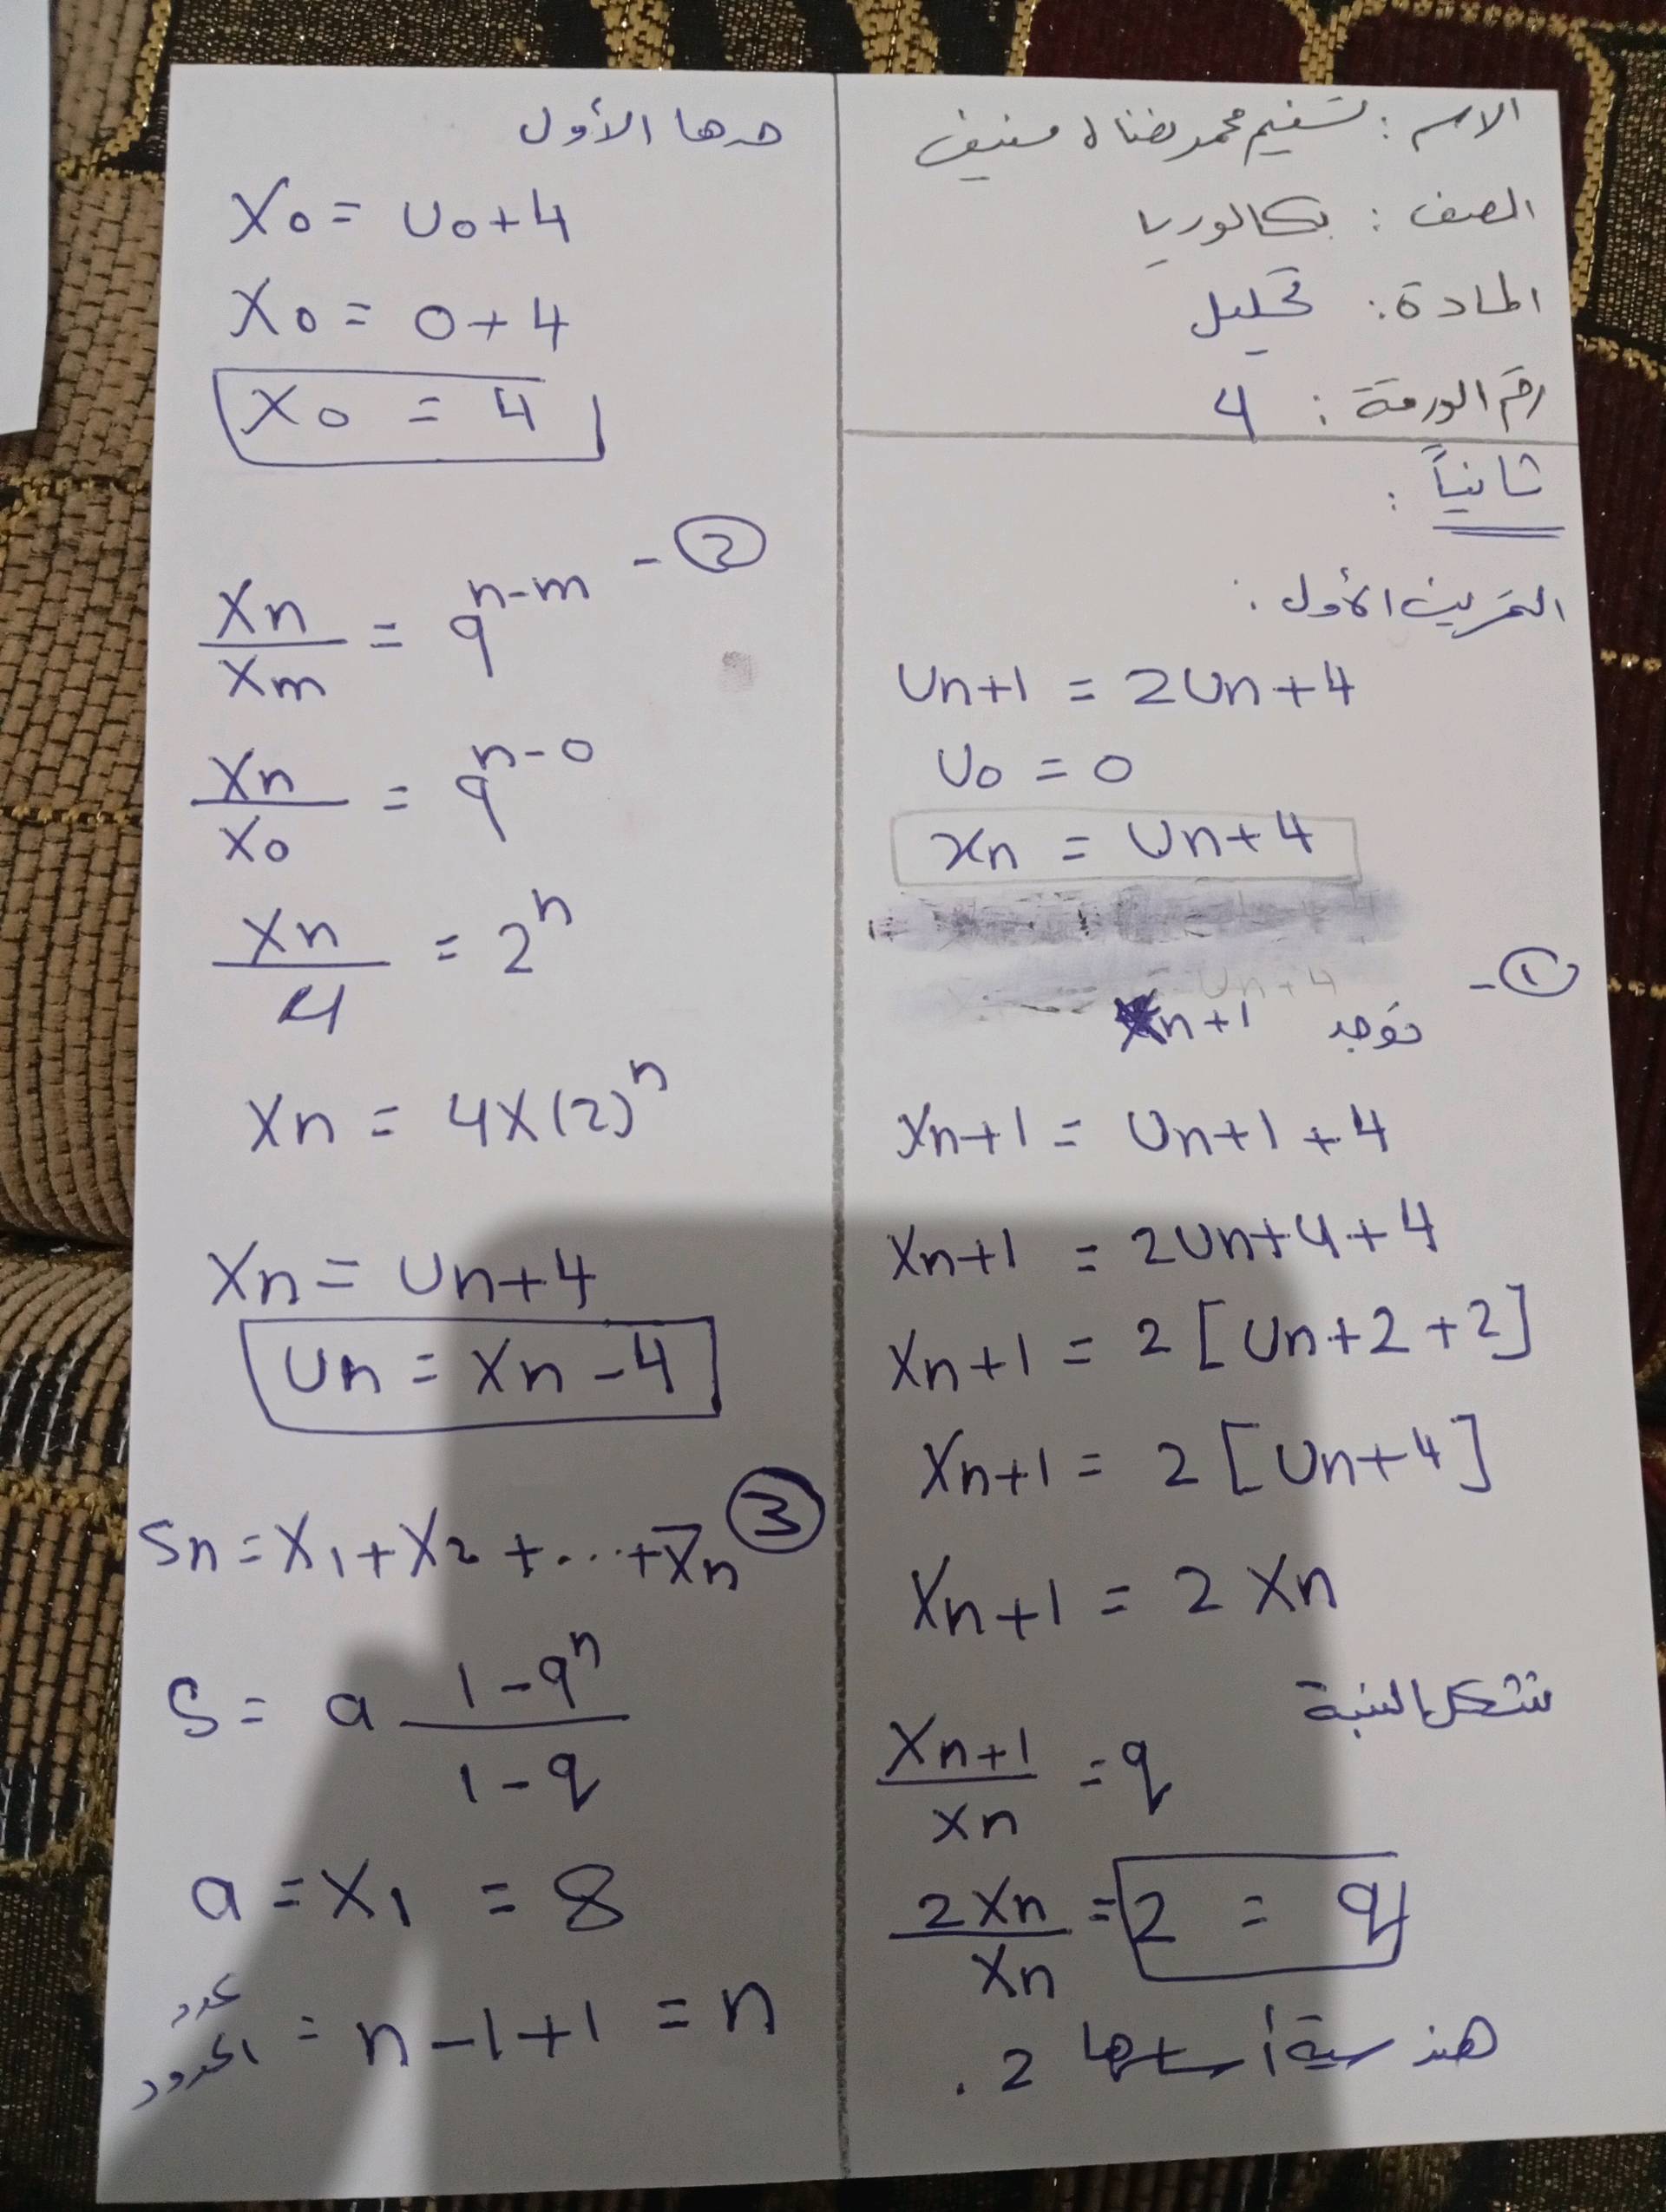 الاسم : تسنيم محمد رضناه منيف
الصف : بكالوريا
المادة : تحليل
رقم الورقة : 4
ثانياً :
التمرين الأول :
Un+1 = 2Un+4
U0 = 0
xn = Un+4
①-
نوجد Xn+1
Xn+1 = Un+1+4
Xn+1 = 2Un+4+4
Xn+1 = 2[Un+2+2]
Xn+1 = 2[Un+4]
Xn+1 = 2Xn
نشكل النسبة
Xn+1/xn = q
2Xn/Xn = 2 = q
هندسية أساسها 2 .
حدها الأول
X0 = U0+4
X0 = 0+4
X0 = 4
②-
Xn/Xm = q^n-m
Xn/X0 = q^n-0
Xn/4 = 2^n
Xn = 4×(2)^n
Xn = Un+4
Un = Xn-4
③
Sn = X1+X2+...+Xn
S = a 1-q^n/1-q
a = X1 = 8
عدد الحدود = n-1+1 = n